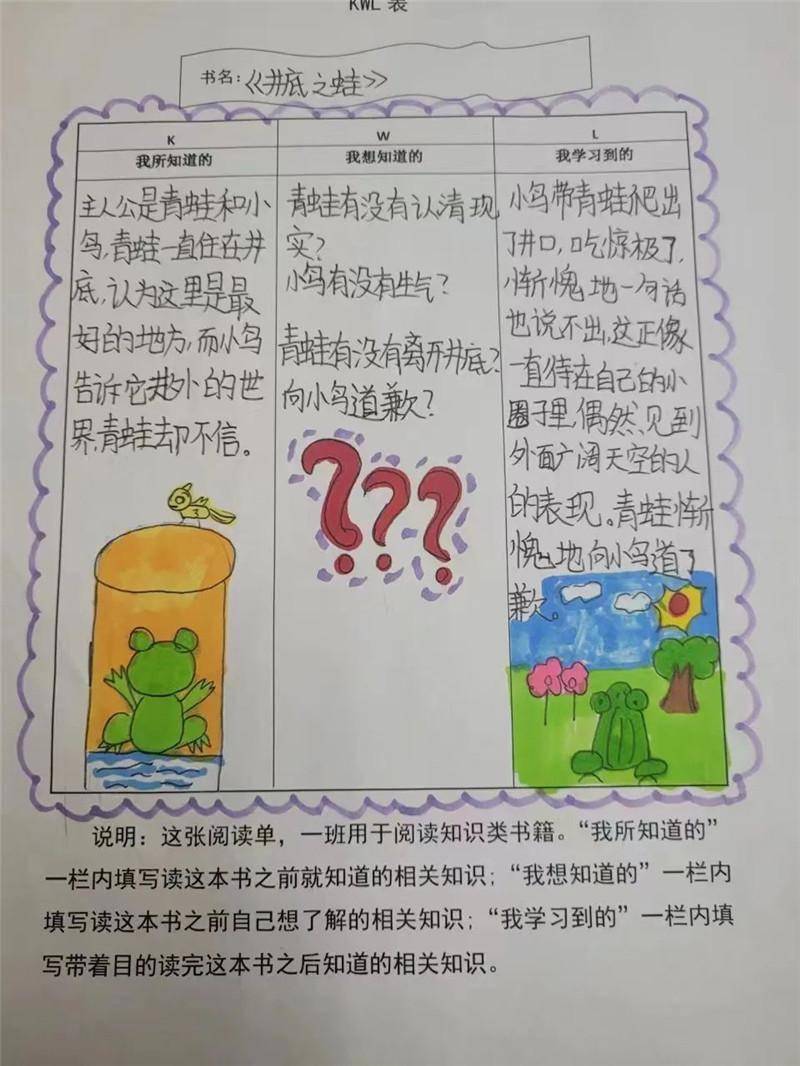 KWL 表
书名：《井底之蛙》
K
我所知道的
主人公是青蛙和小
鸟,青蛙一直住在井
底,认为这里是最
好的地方,而小鸟
告诉它井外的世
界,青蛙却不信。
W
我想知道的
青蛙有没有认清现
实?
小鸟有没有生气?
青蛙有没有离开井底?
向小鸟道歉?
???
L
我学习到的
小鸟带青蛙爬出
了井口,吃惊极了,
惭愧地一句话
也说不出,这正像
一直待在自己的小
圈子里,偶然见到
外面广阔天空的人
的表现。青蛙惭
愧地向小鸟道了
歉。
说明：这张阅读单，一班用于阅读知识类书籍。“我所知道的”
一栏内填写读这本书之前就知道的相关知识；“我想知道的”一栏内
填写读这本书之前自己想了解的相关知识；“我学习到的”一栏内填
写带着目的读完这本书之后知道的相关知识。